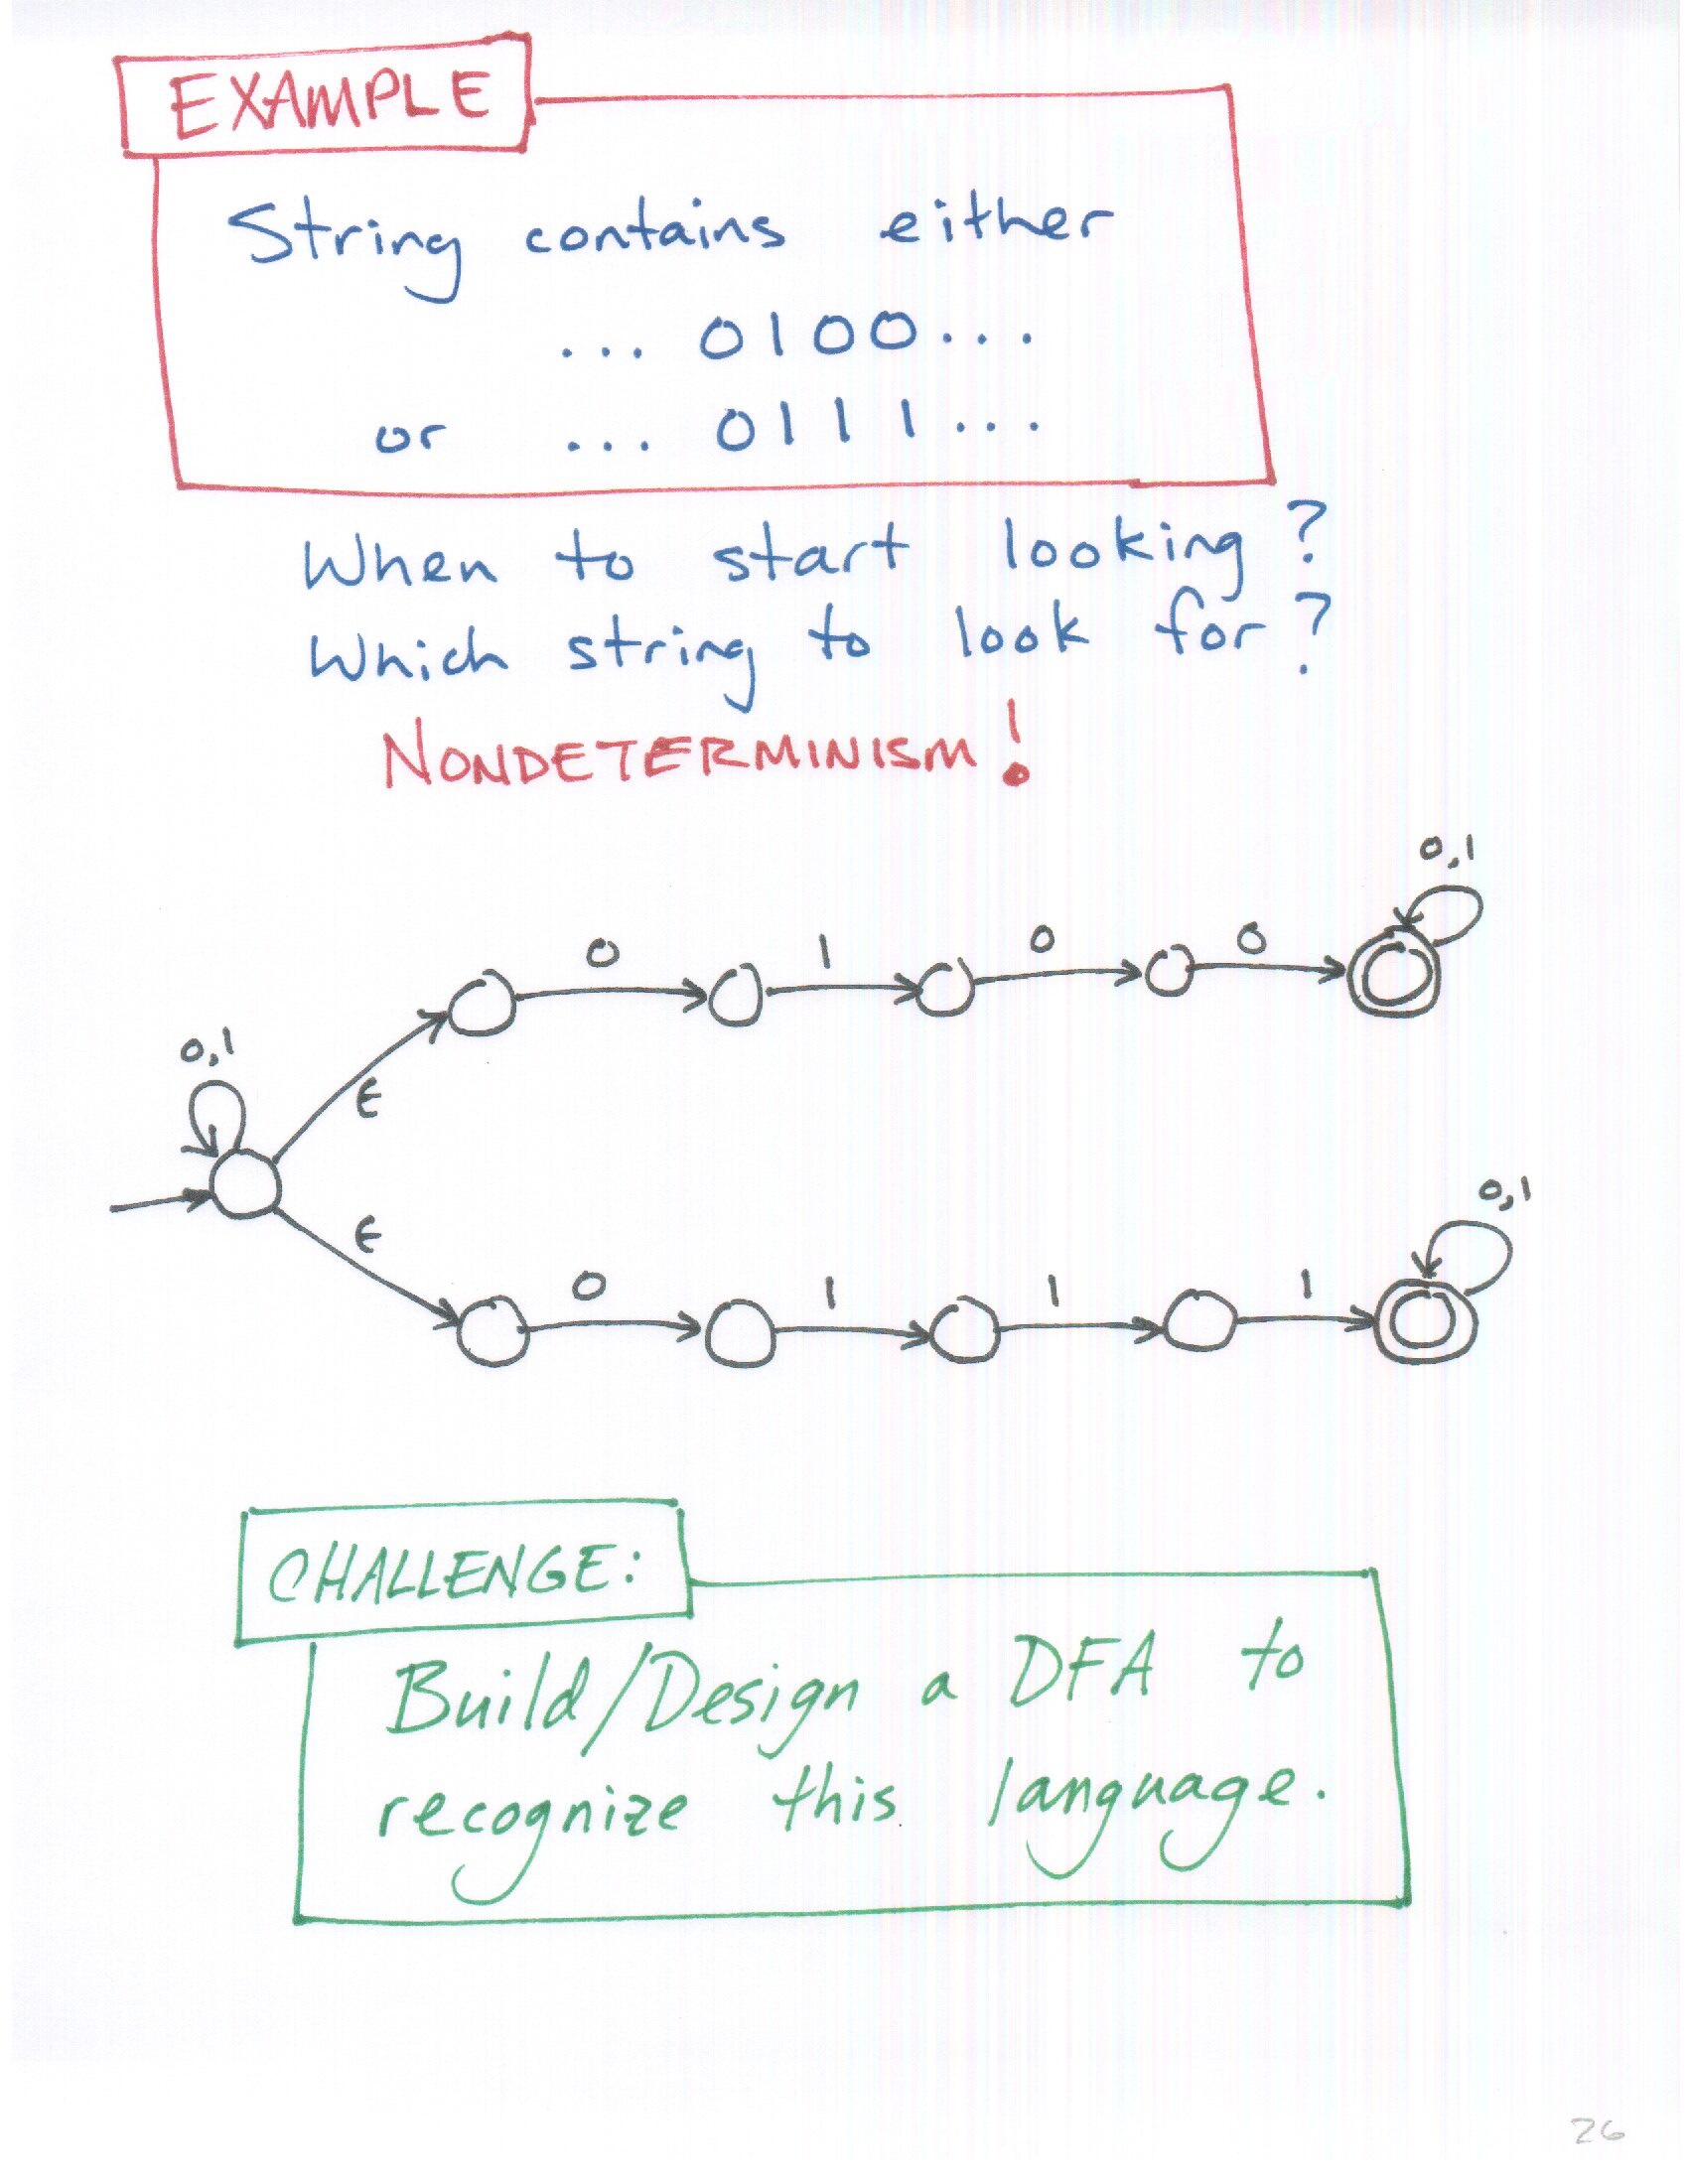 EXAMPLE
String contains either
... 0100...
or ... 0111...
When to start looking?
Which string to look for?
NONDETERMINISM!
0,1
0 1 0 0
0,1
ϵ
ϵ
0,1
0 1 1 1
CHALLENGE:
Build/Design a DFA to
recognize this language.
26